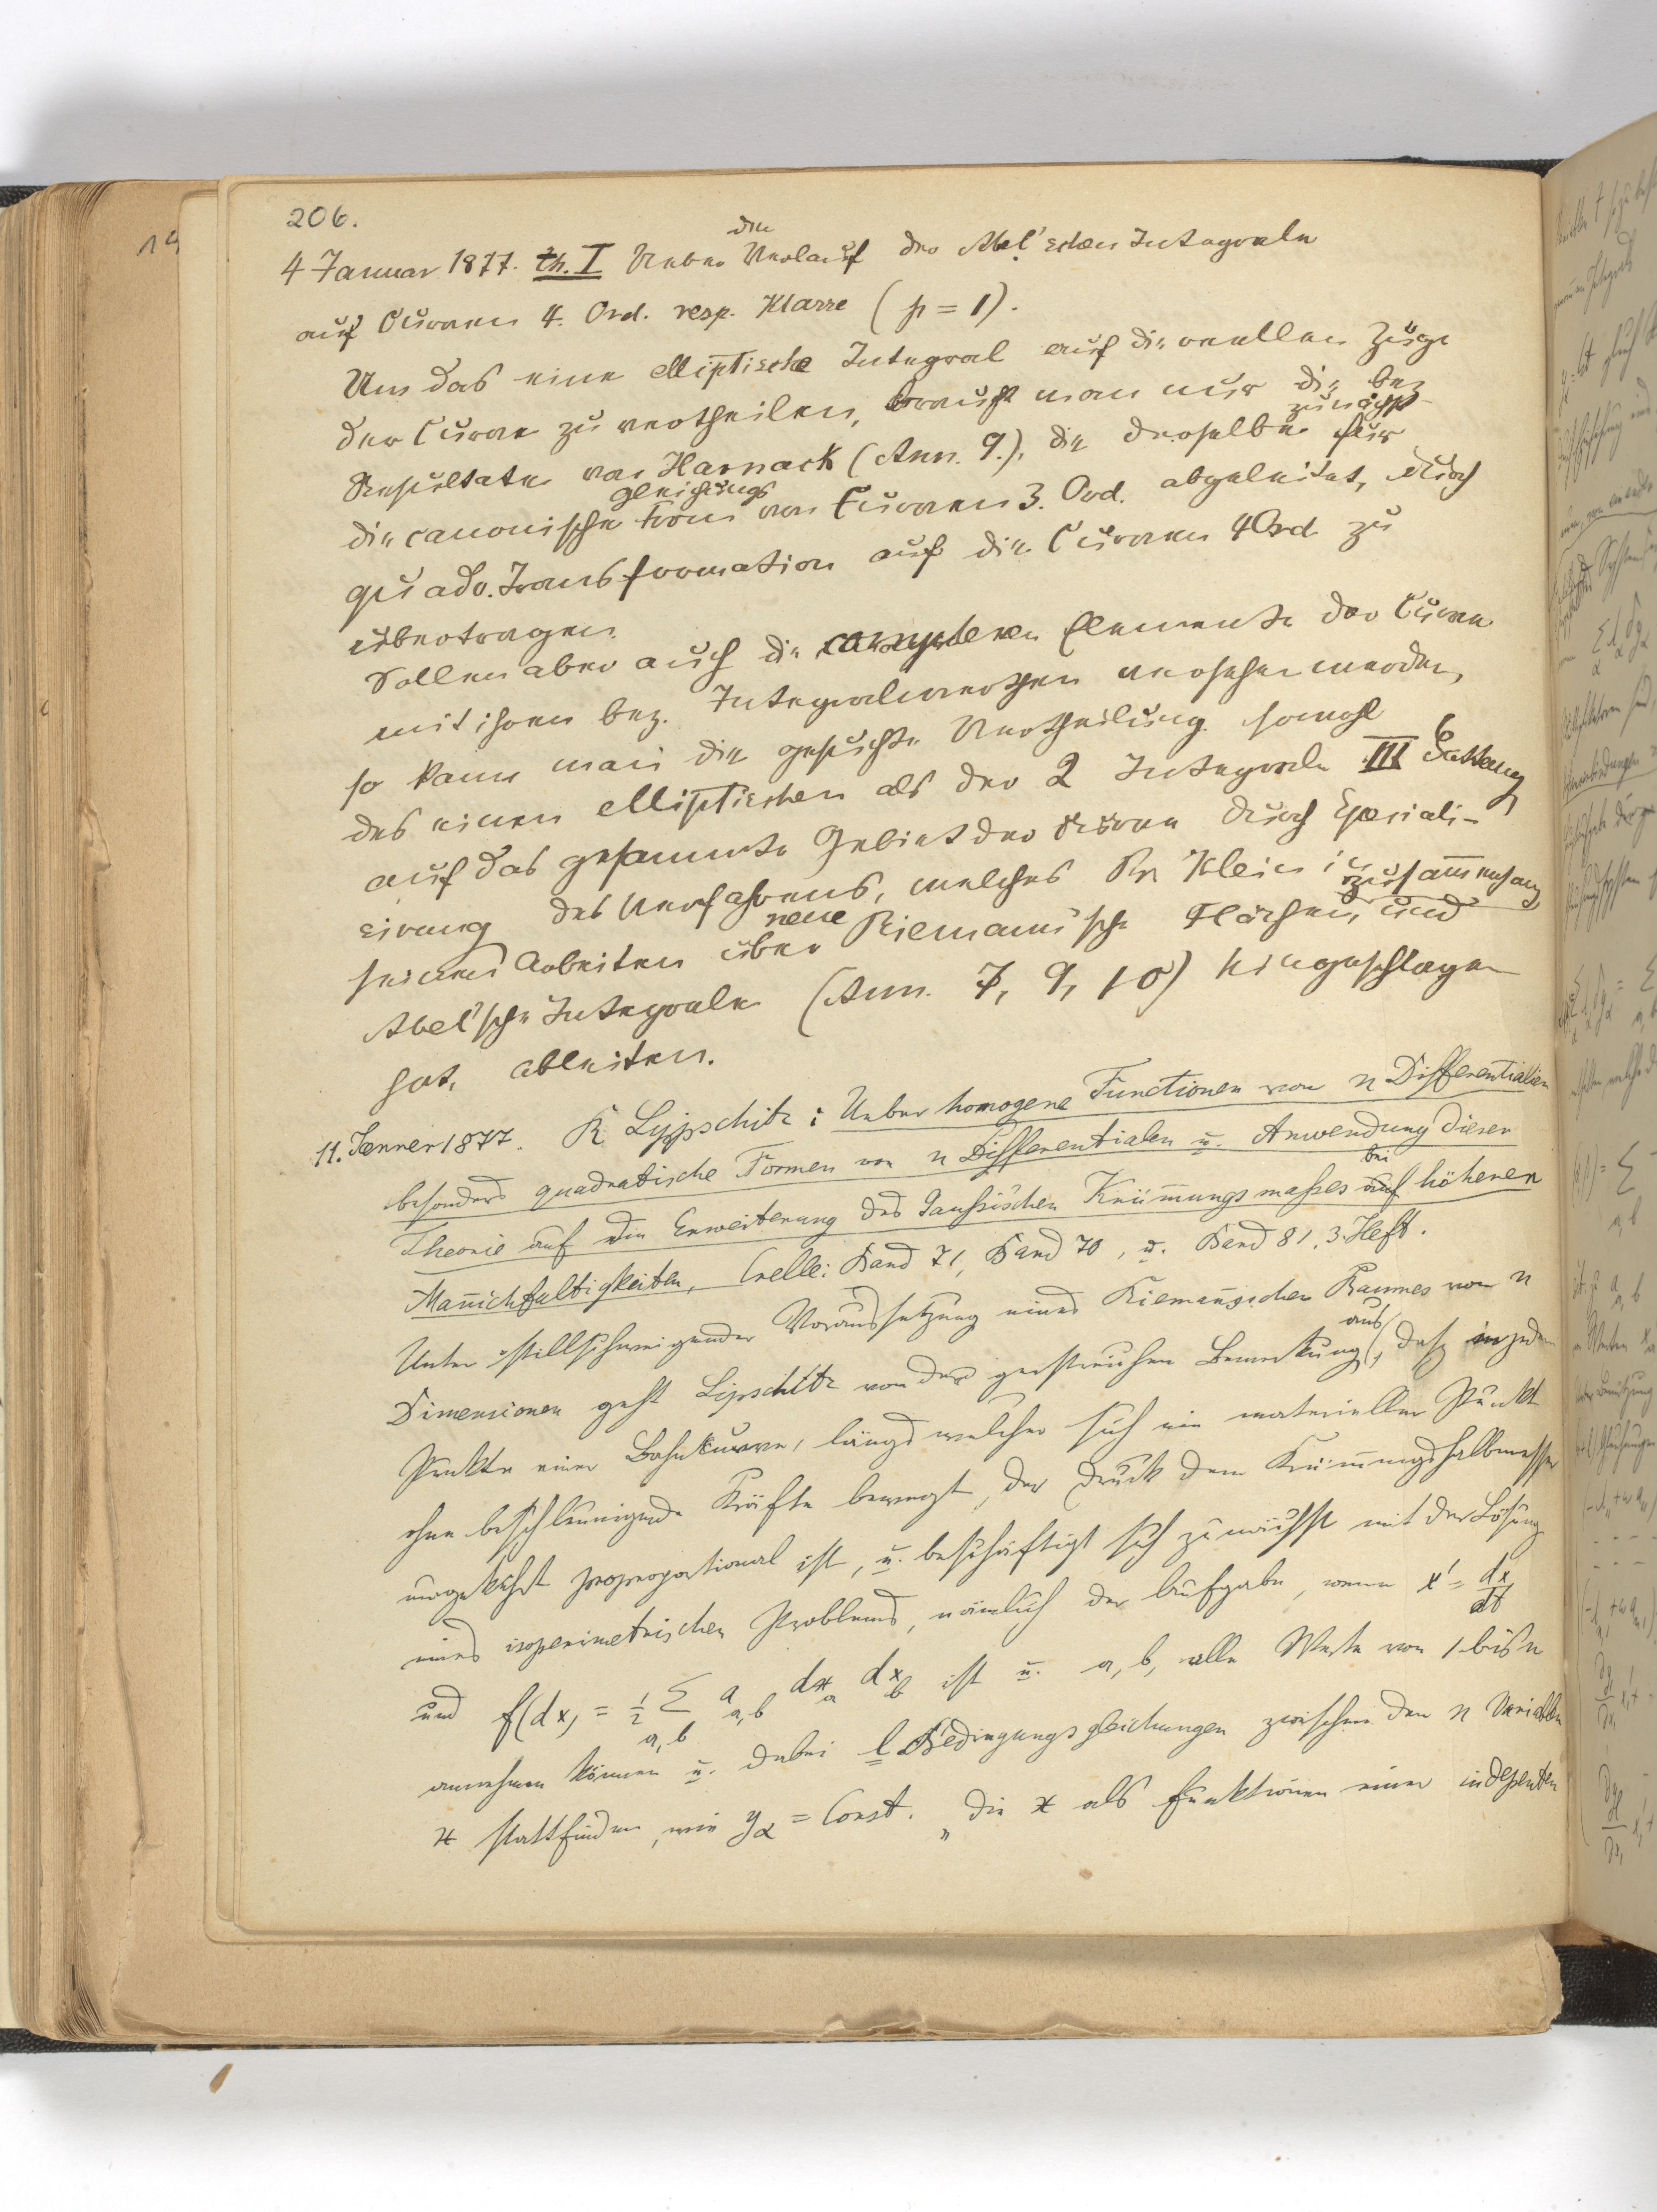 206.
4 Januar 1877. th. I Ueber den Verlauf der Abel'schen Integrale
auf Curven 4. Ord. resp. Klasse (p = 1).
Um das eine elliptische Integral auf die reellen Züge
der Curve zu vertheilen, braucht man nur die bez.
Resultate von Harnack (Ann. 9.), die derselbe zunächst für
die canonische Gleichungsform von Curven 3. Ord. abgeleitet, durch
quadr. Transformation auf die Curven 4 Ord. zu
übertragen.
Sollen aber auch die complexen Elemente der Curve
mit ihren bez. Integralwerthen versehen werden,
so kann man die gesuchte Vertheilung sowohl
des einen elliptischen als der 2 Integrale III Gattung
auf das gesammte Gebiet der Curve durch Speciali-
sirung des Verfahrens, welches Pr. Klein in
seinen Arbeiten über neue Riemann'sche Flächen, und Zusammenhang
Abel'sche Integrale (Ann. 7, 9, 10) eingeschlagen
hat, ableiten.
11. Jenner 1877. R Lypschitz: Ueber homogene Functionen von n Differentialien
besonders quadratische Formen von n Differentialen u. Anwendung dieser
Theorie auf die Erweiterung des Gaussischen Krümungsmasses auf bei höheren
Manichfaltigkeiten, Crelle: Band 71, Band 70, u. Band 81, 3. Heft.
Unter stillschweigender Voraussetzung eines Riemanischen Raumes von n
Dimensionen geht Lipschitz von der geistreichen Bemerkung aus, daß in jedem
Punkte einer Bahnkurve, längs welcher sich ein materieller Punkt
ohne beschleunigende Kräfte bewegt, der Druck dem Krümungshalbmesser
umgekehrt proproportional ist, u. beschäftigt sich zunächst mit der Lösung
eines isoperimetrischen Problems, nämlich der Aufgabe, wenn x' = dx/dt
und f(dx) = 1/2 Σ a,b a a,b dx a dx b ist u. a, b, alle Werte von 1 bis n
annehmen können u. dabei l Bedingungsgleichungen zwischen den n Variablen
x stattfinden, wie yα = Const. „die x als Funktionen einer indepenten